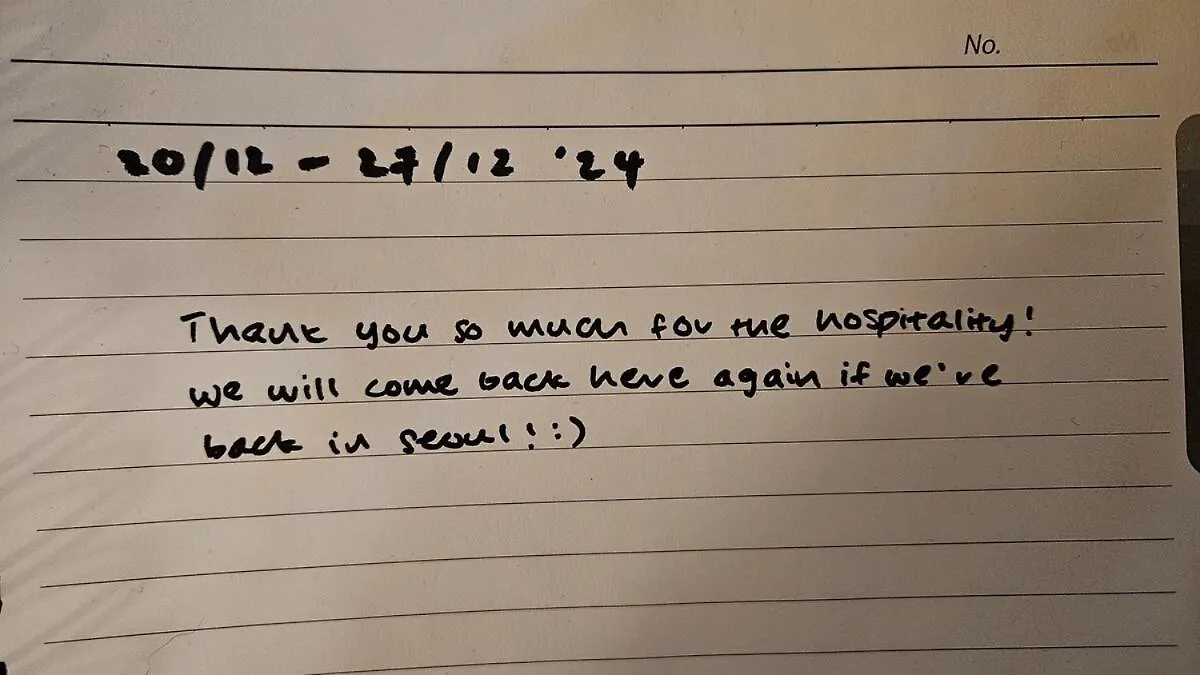 No.
20/12 - 27/12 '24
Thank you so much for the hospitality!
we will come back here again if we've
back in seoul! :)